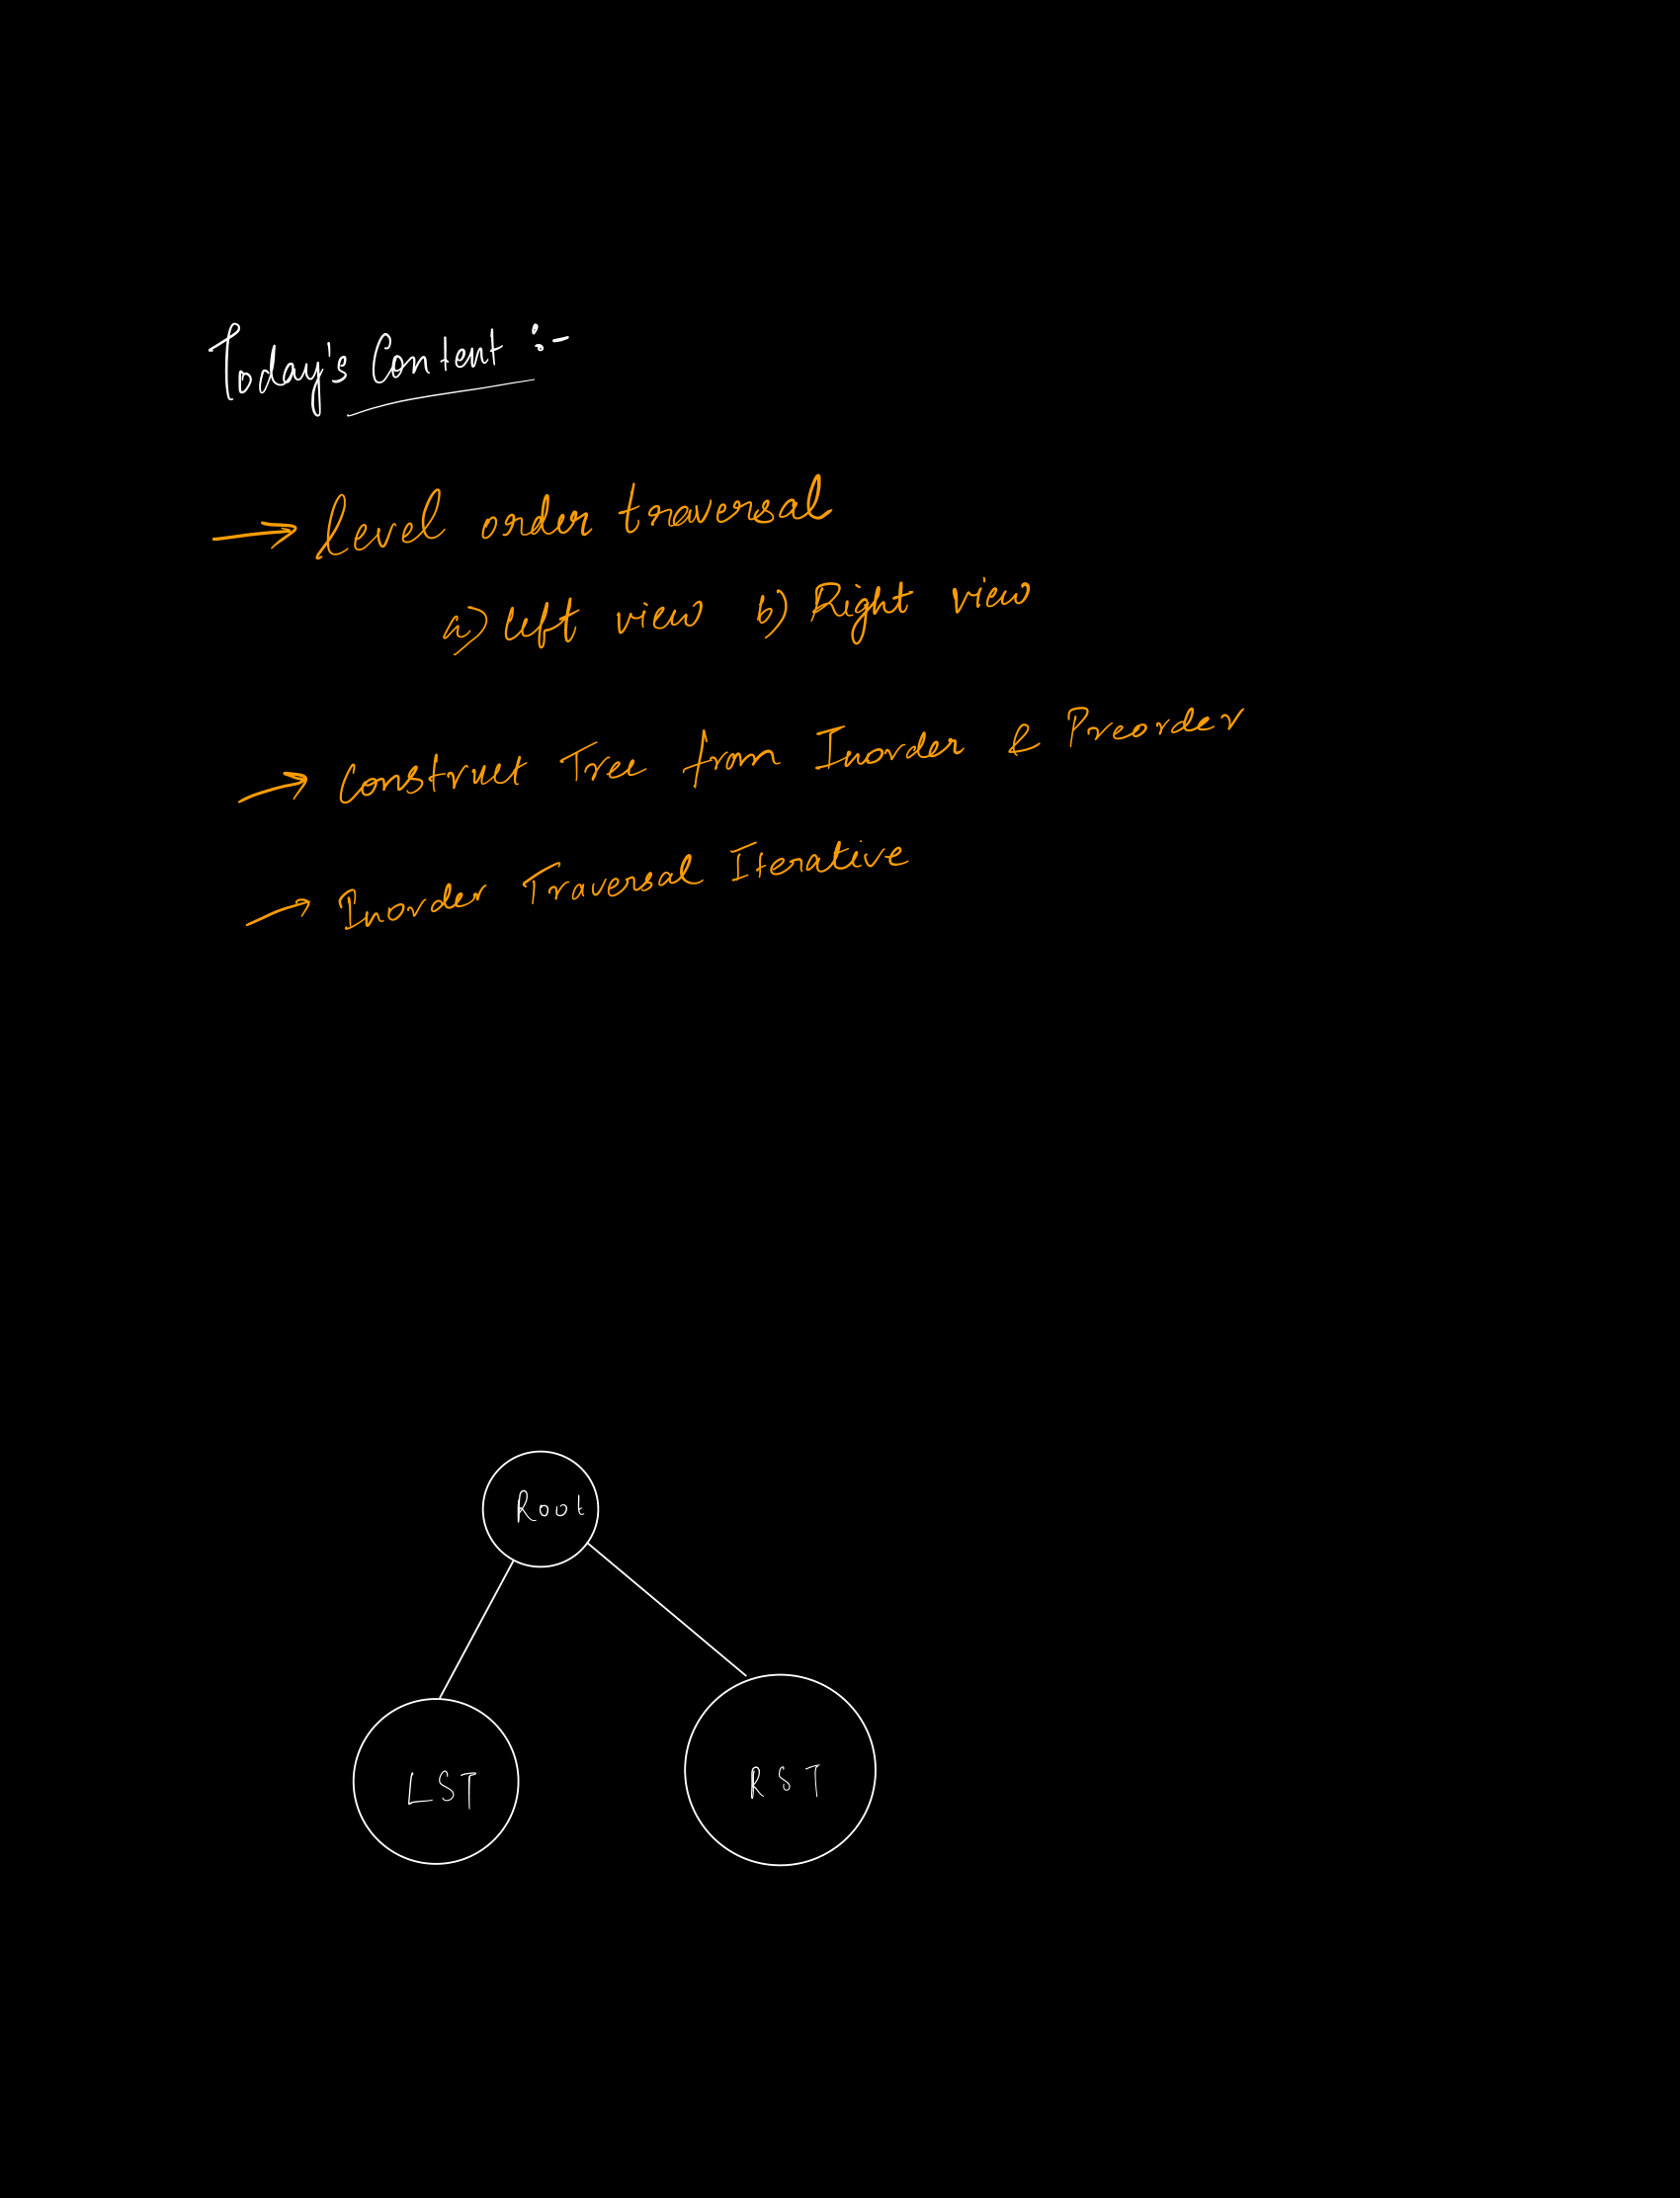 Today's Content :-
→ level order traversal
a) left view b) Right view
→ Construct Tree from Inorder & Preorder
→ Inorder Traversal Iterative
Root
LST
RST